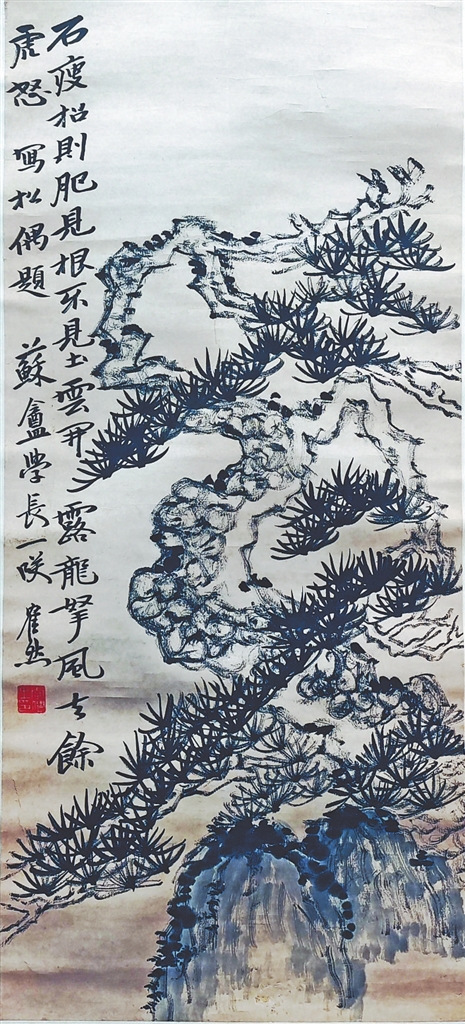 石瘦松則肥見根不見土雲開露龍拏風去餘
虎怒 寫松偶題 蘇盦学長一咲 崔然